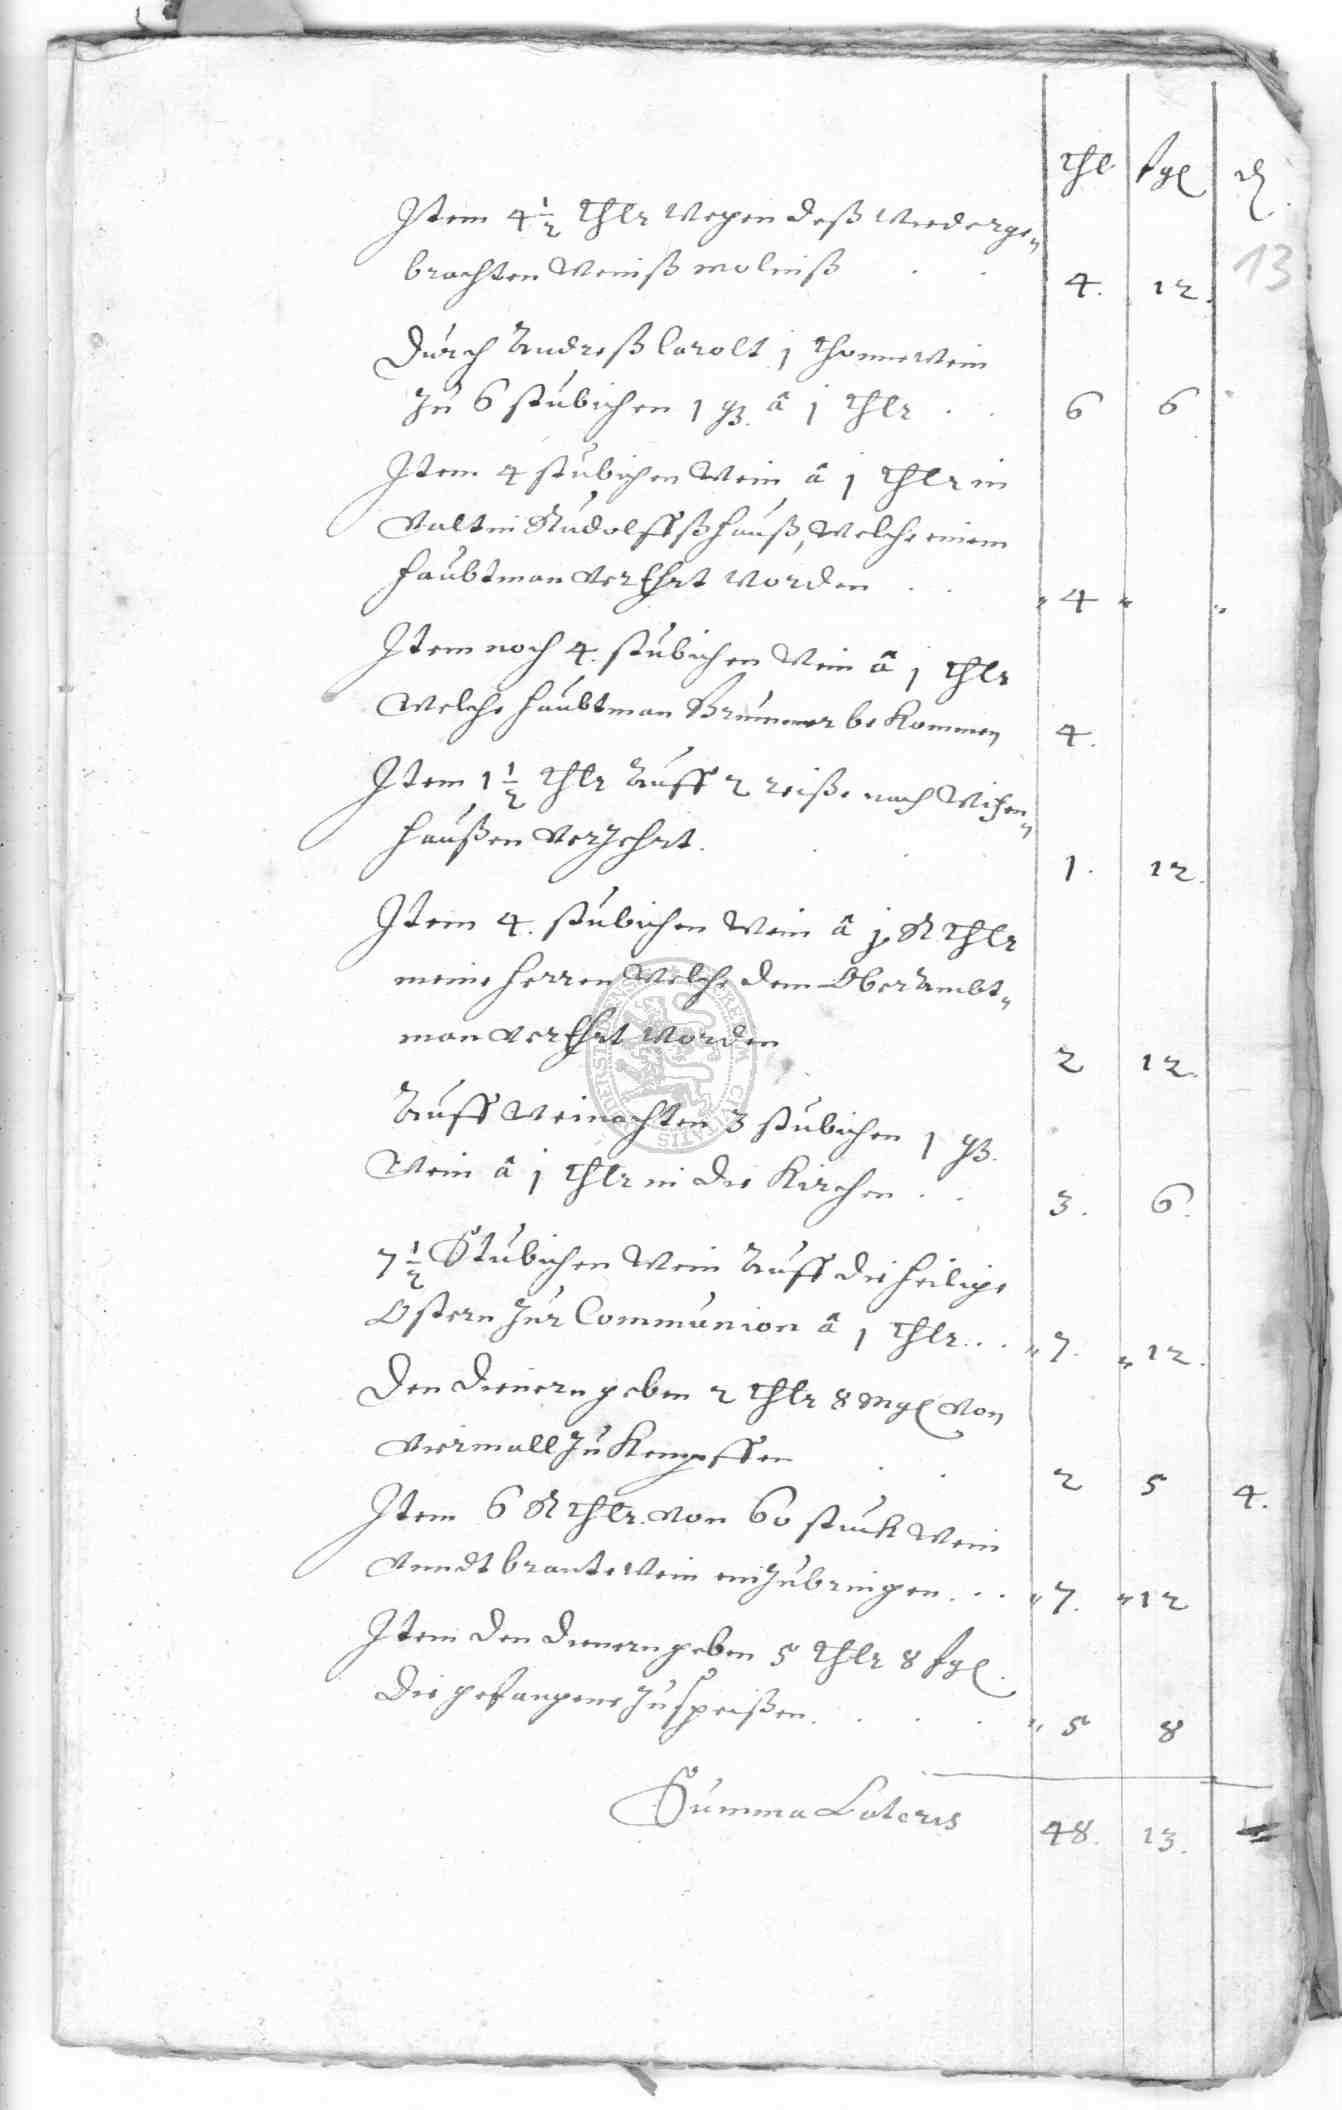 Thlr ßgl ₰
13
Item 4½ Thlr Wegen deß Wiederge„
brachten Weinß 4. 12.
Durch Andreß Carolt j Thonne Wein
Zu 6 stübichen 1 â j Thlr . . 6 6
Item 4 stübichen Wein â j Thlr in
Valtin Rudolffß hauß, Welche einem
haubtman Verehrt Worden . . „ 4 „ „
Item noch 4. stübichen Wein â j Thlr
Welche haubtman Brummer bekommen 4.
Item 1½ Thlr Auff 2 reiße nach Witzen„
haußen Verzehrt. 1. 12.
Item 4. stübichen Wein â j. RThlr
meine herren Welche dem OberAmbt„
man Verehrt Worden 2 12.
Auff Weinachten 3 stübichen 1
Wein â j Thlr in die Kirchen . . 3. 6.
7½ Stübichen Wein Auff die heilige
Ostern Zur Communion â 1 Thlr . . . „ 7. „ 12.
Den dienern geben 2 Thlr 8 Mgl Von
Viermall Zu . . 2 5 4.
Item 6 RThlr. Von 60 stück Wein
Vundt brante Wein einZubringen . . . „ 7. „ 12
Item den dienern geben 5 Thlr 8 ßgl.
Die gefangene Zu speißen. . . . „ 5 8
Summa Lateris 48. 13.